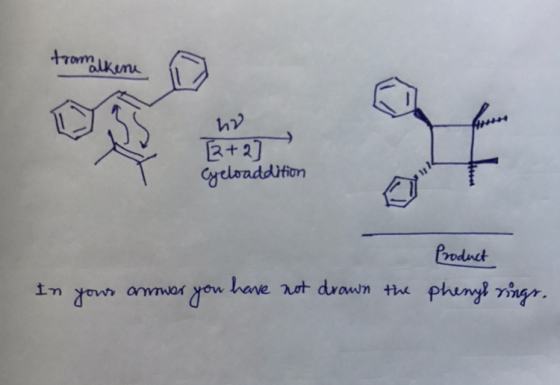 trans
alkene
hν
[2+2]
Cycloaddition
Product
In your answer you have not drawn the phenyl rings.